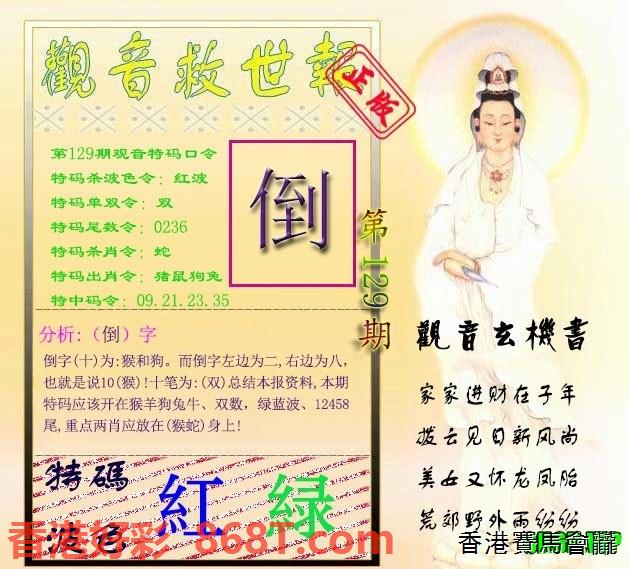 觀音救世報
正版
第129期观音特码口令
特码杀波色令：红波
特码单双令：双
特码尾数令：0236
特码杀肖令：蛇
特码出肖令：猪鼠狗兔
特中码令：09.21.23.35
倒
第129期
分析:（倒）字
倒字(十)为:猴和狗。而倒字左边为二,右边为八,
也就是说10(猴)!十笔为:(双)总结本报资料,本期
特码应该开在猴羊狗兔牛、双数，绿蓝波、12458
尾,重点两肖应放在(猴蛇)身上!
觀音玄機書
家家进财在子年
拨云见日新风尚
美女又怀龙凤胎
荒郊野外雨纷纷
特碼
波色
紅 綠
香港好彩-868T.com
香港賽馬會